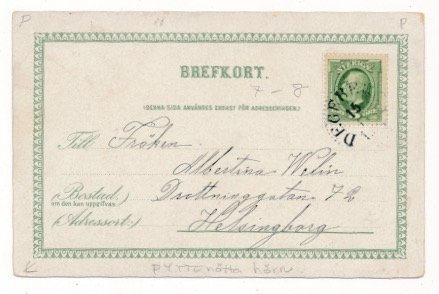 P P
BREFKORT.
7-8
SVERIGE
(DENNA SIDA ANVÄNDES ENDAST FÖR ADRESSERINGEN.)
DEGEBE
15
Till Fröken
Albertina Welin
(Bostad.) Drottninggatan 72
om den kan uppgifvas
(Adressort:) Helsingborg
PYTTEnötta hörn